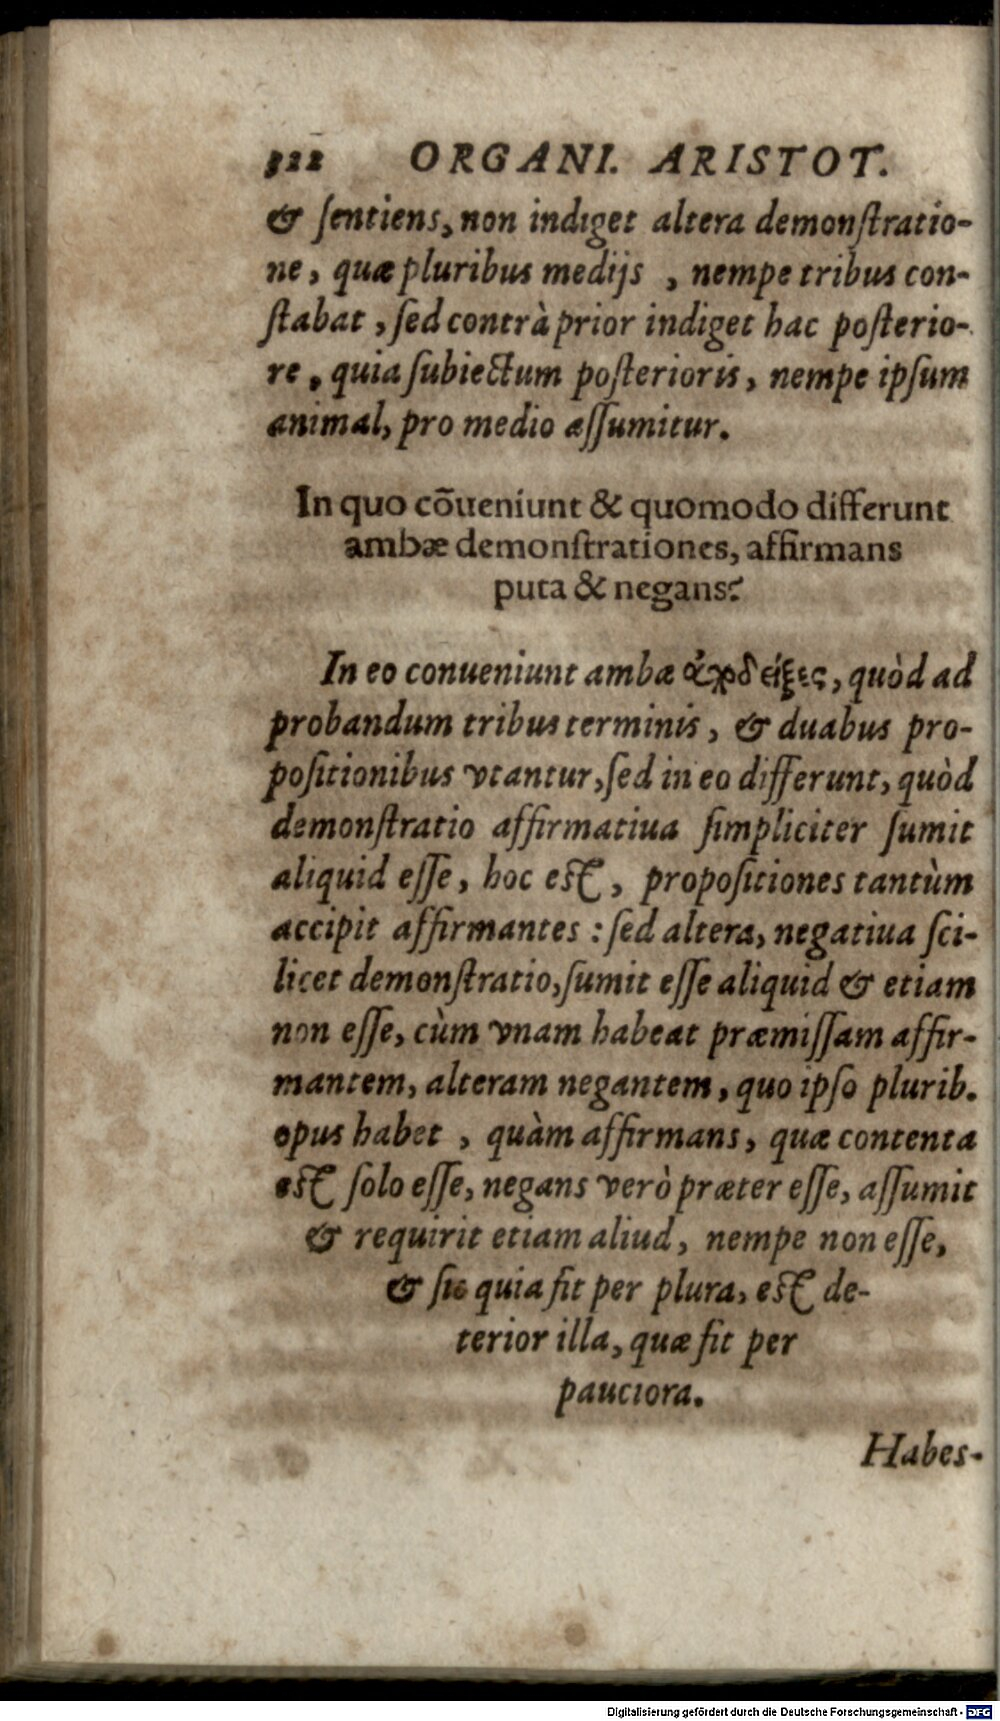 322 ORGANI. ARISTOT.
& ſentiens, non indiget altera demonſtratio-
ne, quæ pluribus medijs , nempe tribus con-
ſtabat, ſed contrà prior indiget hac poſterio-
re, quia ſubiectum poſterioris, nempe ipſum
animal, pro medio aſſumitur.
In quo cõueniunt & quomodo differunt
ambæ demonſtrationes, affirmans
puta & negans?
In eo conueniunt ambæ ἀποδείξεις, quòd ad
probandum tribus terminis, & duabus pro-
poſitionibus vtantur, ſed in eo differunt, quòd
demonſtratio affirmatiua ſimpliciter ſumit
aliquid eſſe, hoc est, propoſitiones tantùm
accipit affirmantes : ſed altera, negatiua ſci-
licet demonſtratio, ſumit eſſe aliquid & etiam
non eſſe, cùm vnam habeat præmiſſam affir-
mantem, alteram negantem, quo ipſo plurib.
opus habet , quàm affirmans, quæ contenta
est ſolo eſſe, negans verò præter eſſe, aſſumit
& requirit etiam aliud, nempe non eſſe,
& ſic quia fit per plura, est de-
terior illa, quæ fit per
pauciora.
Habes-
Digitalisierung gefördert durch die Deutsche Forschungsgemeinschaft - DFG